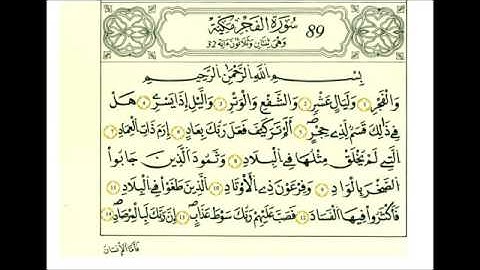 سُورَةُ الْفَجْرِ مَكِّيَّةٌ 89
وَهْيَ ثِنْتَانِ وَثَلَاثُونَ ءَايَةً 32
بِسْمِ اللَّهِ الرَّحْمَٰنِ الرَّحِيمِ
وَالْفَجْرِ ١ وَلَيَالٍ عَشْرٍ ٢ وَالشَّفْعِ وَالْوَتْرِ ٣ وَالَّيْلِ إِذَا يَسْرِۦ ٤ هَلْ
فِي ذَٰلِكَ قَسَمٌ لِّذِي حِجْرٍ ٥ أَلَمْ تَرَ كَيْفَ فَعَلَ رَبُّكَ بِعَادٍ ٦ إِرَمَ ذَاتِ الْعِمَادِ ٧
الَّتِي لَمْ يُخْلَقْ مِثْلُهَا فِي الْبِلَٰدِ ٨ وَثَمُودَ الَّذِينَ جَابُوا
الصَّخْرَ بِالْوَادِ ٩ وَفِرْعَوْنَ ذِي الْأَوْتَادِ ١٠ الَّذِينَ طَغَوْا فِي الْبِلَٰدِ ١١
فَأَكْثَرُوا فِيهَا الْفَسَادَ ١٢ فَصَبَّ عَلَيْهِمْ رَبُّكَ سَوْطَ عَذَابٍ ١٣ إِنَّ رَبَّكَ لَبِالْمِرْصَادِ ١٤
فَأَمَّا الْإِنسَٰنُ